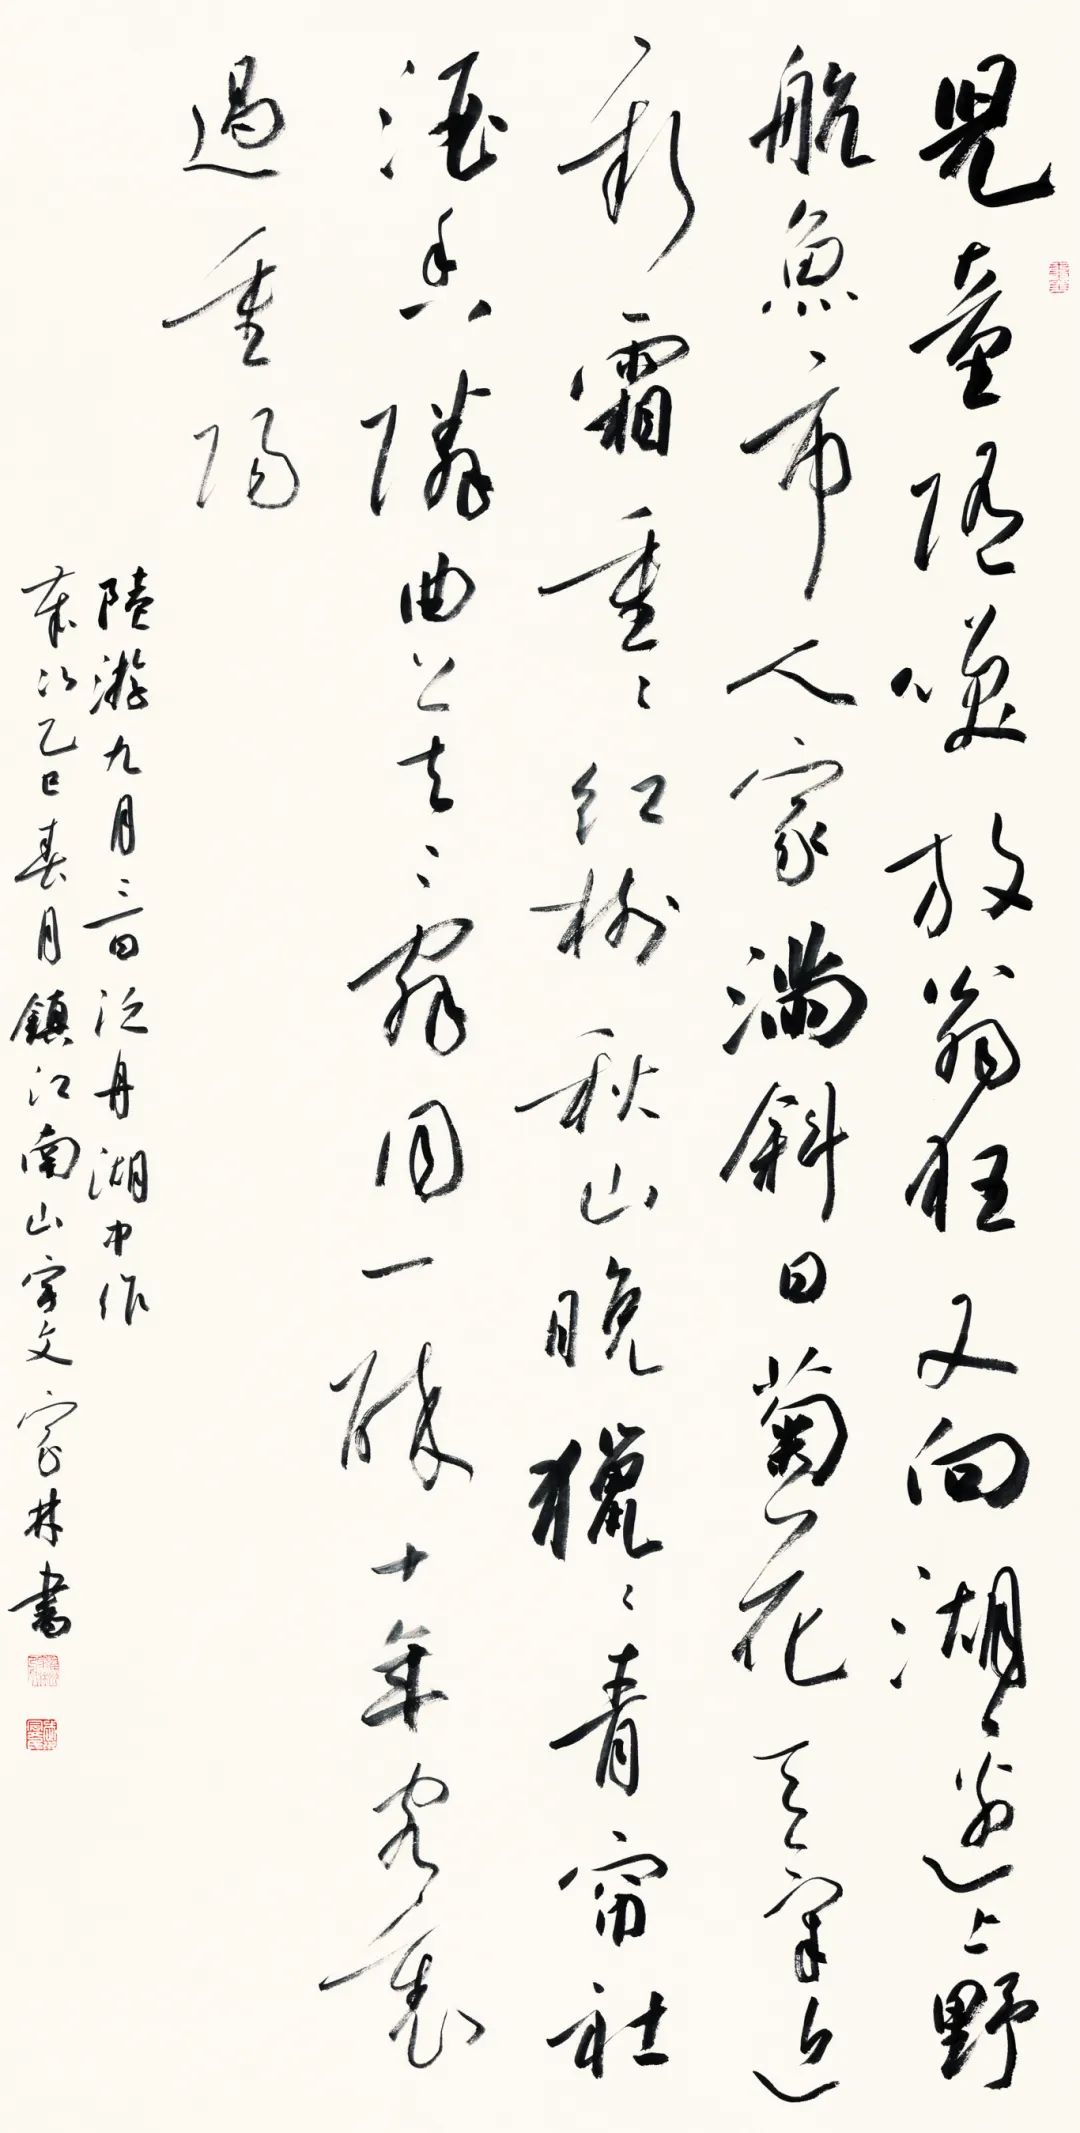 兒童隨咲放翁狂又向湖邊上野
航魚市人家滿斜日菊花天氣近
新霜重〻紅樹秋山晚獵〻青帘社
酒香隣曲莫辭同一醉十年客裏
過重陽
陸游九月三日泛舟湖中作
歲次乙巳春月鎮江南山宇文家林書